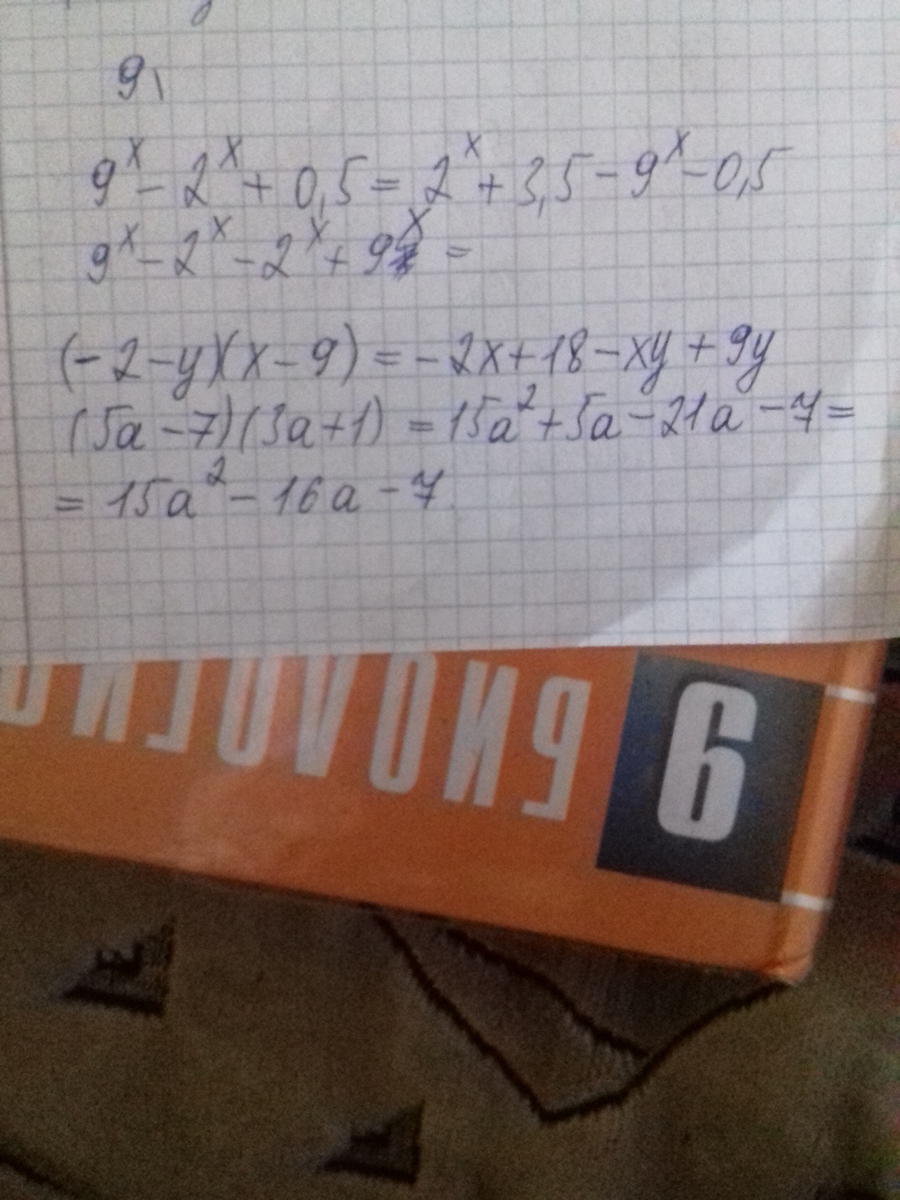 9\
9^x - 2^x + 0,5 = 2^x + 3,5 - 9^x - 0,5
9^x - 2^x - 2^x + 9^x =
(-2-y)(x-9) = -2x+18-xy+9y
(5a-7)(3a+1) = 15a²+5a-21a-7=
= 15a² - 16a - 7
9